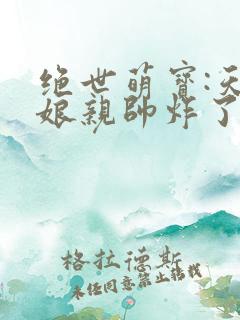 绝世萌宝:天
娘亲帅炸了
格拉德斯
未经同意禁止转载